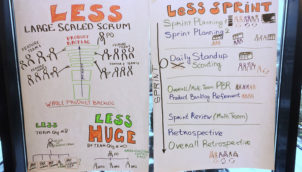 LESS
LARGE SCALED SCRUM
PRODUCT
BACKLOG
PO
WHOLE PRODUCT BACKLOG
LESS
LESS
HUGE
LESS SPRINT
Sprint Planning 1
Sprint Planning 2
Daily Standup
Scouting
SPRINT
Overall/Multi Team PBR
Product Backlog Refinement
Sprint Review (Multi Team)
Retrospective
Overall Retrospective